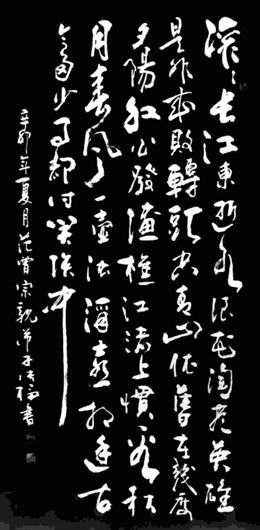 滚滚长江東逝水浪花淘尽英雄
是非成敗轉頭空青山依舊在幾度
夕陽红白發漁樵江渚上慣看秋
月春风一壶浊酒喜相逢古
今多少事都付笑谈中
辛卯年夏月范曾宗親弟子書